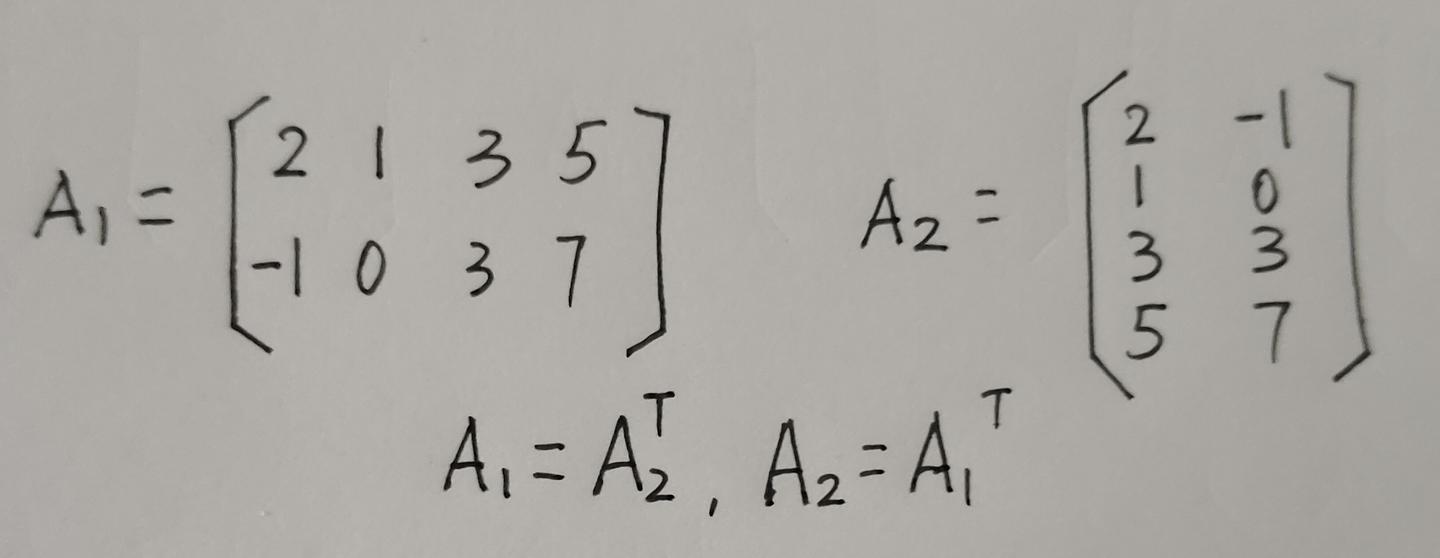 A₁ = [2 1 3 5; -1 0 3 7]  A₂ = [2 -1; 1 0; 3 3; 5 7]
A₁ = A₂ᵀ, A₂ = A₁ᵀ